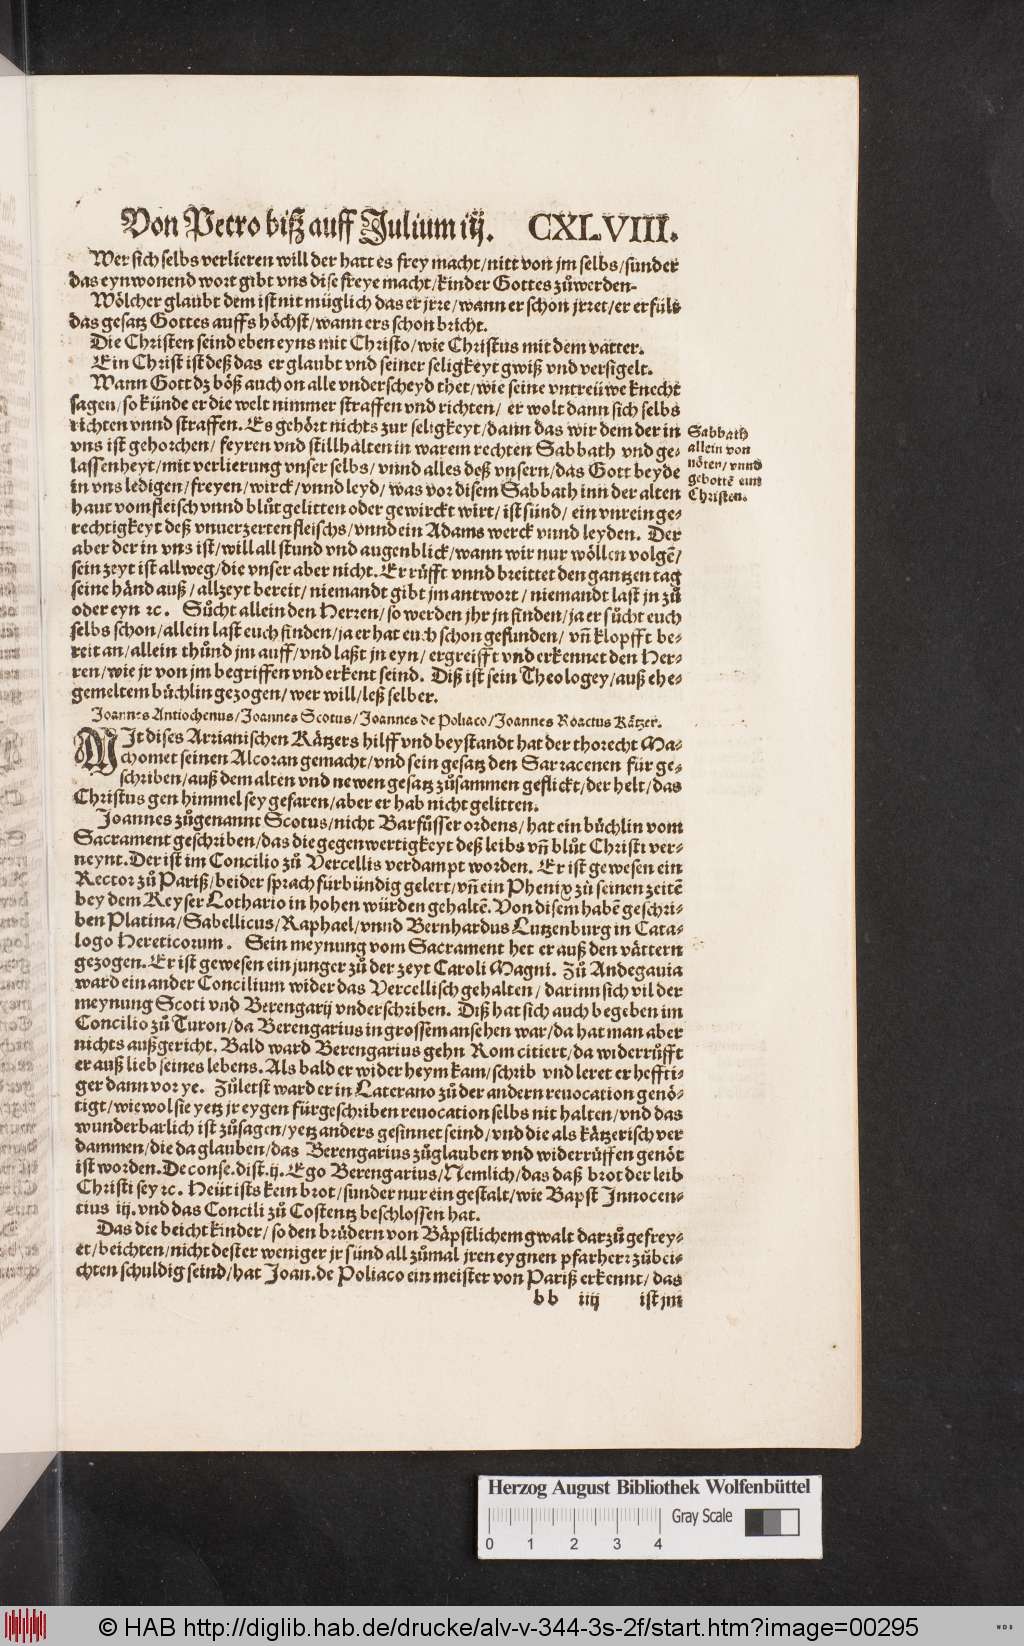 Von Petro biß auff Julium iij. CXLVIII.
Wer sich selbs verlieren will der hatt es frey macht/nitt von jm selbs/sunder
das eynwonend wort gibt vns dise freye macht/kinder Gottes zůwerden-
Wölcher glaubt dem ist nit müglich das er jrre/wann er schon jrret/er erfüls
das gesatz Gottes auffs höchst/wann ers schon bricht.
Die Christen seind eben eyns mit Christo/wie Christus mit dem vatter.
Ein Christ ist deß das er glaubt vnd seiner seligkeyt gwiß vnd versigelt.
Wann Gott dz böß auch on alle vnderscheyd thet/wie seine vntreüwe knecht
sagen/so künde er die welt nimmer straffen vnd richten/ er wolt dann sich selbs
richten vnnd straffen. Es gehört nichts zur seligkeyt/dann das wir dem der in
vns ist gehorchen/ feyren vnd stillhalten in warem rechten Sabbath vnd ge-
lassenheyt/mit verlierung vnser selbs/vnnd alles deß vnsern/das Gott beyde
in vns ledigen/freyen/wirck/vnnd leyd/was vor disem Sabbath inn der alten
haut vom fleisch vnnd blůt gelitten oder gewirckt wirt/ist sünd/ ein vnrein ge-
rechtigkeyt deß vnuerzerten fleischs/vnnd ein Adams werck vnnd leyden. Der
aber der in vns ist/will all stund vnd augenblick/wann wir nur wöllen volgē/
sein zeyt ist allweg/die vnser aber nicht. Er rüfft vnnd breittet den gantzen tag
seine händ auß/allzeyt bereit/niemandt gibt jm antwort/niemandt last jn zů
oder eyn ꝛc. Sůcht allein den Herren/so werden jhr jn finden/ja er sůcht euch
selbs schon/allein last euch finden/ja er hat euch schon gefunden/ vñ klopfft be-
reit an/allein thůnd jm auff/vnd laßt jn eyn/ergreifft vnd erkennet den Her-
ren/wie jr von jm begriffen vnd erkent seind. Diß ist sein Theologey/auß ehe-
gemeltem bůchlin gezogen/wer will/leß selber.
Sabbath
allein von
nöten/vnnd
gebottē eim
Christen.
Joannes Antiochenus/Joannes Scotus/Joannes de Poliaco/Joannes Roactus Kätzer.
MIt dises Arrianischen Kätzers hilff vnd beystandt hat der thorecht Ma-
chomet seinen Alcoran gemacht/vnd sein gesatz den Sarracenen für ge-
schriben/auß dem alten vnd newen gesatz zůsammen geflickt/der helt/das
Christus gen himmel sey gefaren/aber er hab nicht gelitten.
Joannes zůgenannt Scotus/nicht Barfüsser ordens/hat ein bůchlin vom
Sacrament geschriben/das die gegenwertigkeyt deß leibs vñ blůt Christi ver-
neynt. Der ist im Concilio zů Vercellis verdampt worden. Er ist gewesen ein
Rector zů Pariß/beider sprach fürbündig gelert/vñ ein Phenix zů seinen zeitē
bey dem Keyser Lothario in hohen würden gehaltē. Von disem habē geschri-
ben Platina/Sabellicus/Raphael/vnnd Bernhardus Lutzenburg in Cata-
logo Hereticorum. Sein meynung vom Sacrament het er auß den vättern
gezogen. Er ist gewesen ein junger zů der zeyt Caroli Magni. Zů Andegauia
ward ein ander Concilium wider das Vercellisch gehalten/ darinn sich vil der
meynung Scoti vnd Berengarij vnderschriben. Diß hat sich auch begeben im
Concilio zů Turon/da Berengarius in grossem ansehen war/da hat man aber
nichts außgericht. Bald ward Berengarius gehn Rom citiert/da widerrüfft
er auß lieb seines lebens. Als bald er wider heym kam/schrib vnd leret er heffti-
ger dann vor ye. Zůletst ward er in Laterano zů der andern reuocation genö-
tigt/wiewol sie yetz jr eygen fürgeschriben reuocation selbs nit halten/vnd das
wunderbarlich ist zůsagen/yetz anders gesinnet seind/vnd die als kätzerisch ver
dammen/die da glauben/das Berengarius zůglauben vnd widerrüffen genöt
ist worden. De conse. dist. ij. Ego Berengarius/Nemlich/das daß brot der leib
Christi sey ꝛc. Heüt ists kein brot/sunder nur ein gestalt/wie Bapst Innocen-
tius iij. vnd das Concili zů Costentz beschlossen hat.
Das die beichtkinder/so den brüdern von Bäpstlichem gwalt darzů gefrey-
et/beichten/nicht dester weniger jr sünd all zůmal jren eygnen pfarherr zůbei-
chten schuldig seind/hat Joan. de Poliaco ein meister von Pariß erkennt/das
bb iiij ist jm
Herzog August Bibliothek Wolfenbüttel
Gray Scale
0 1 2 3 4
© HAB http://diglib.hab.de/drucke/alv-v-344-3s-2f/start.htm?image=00295